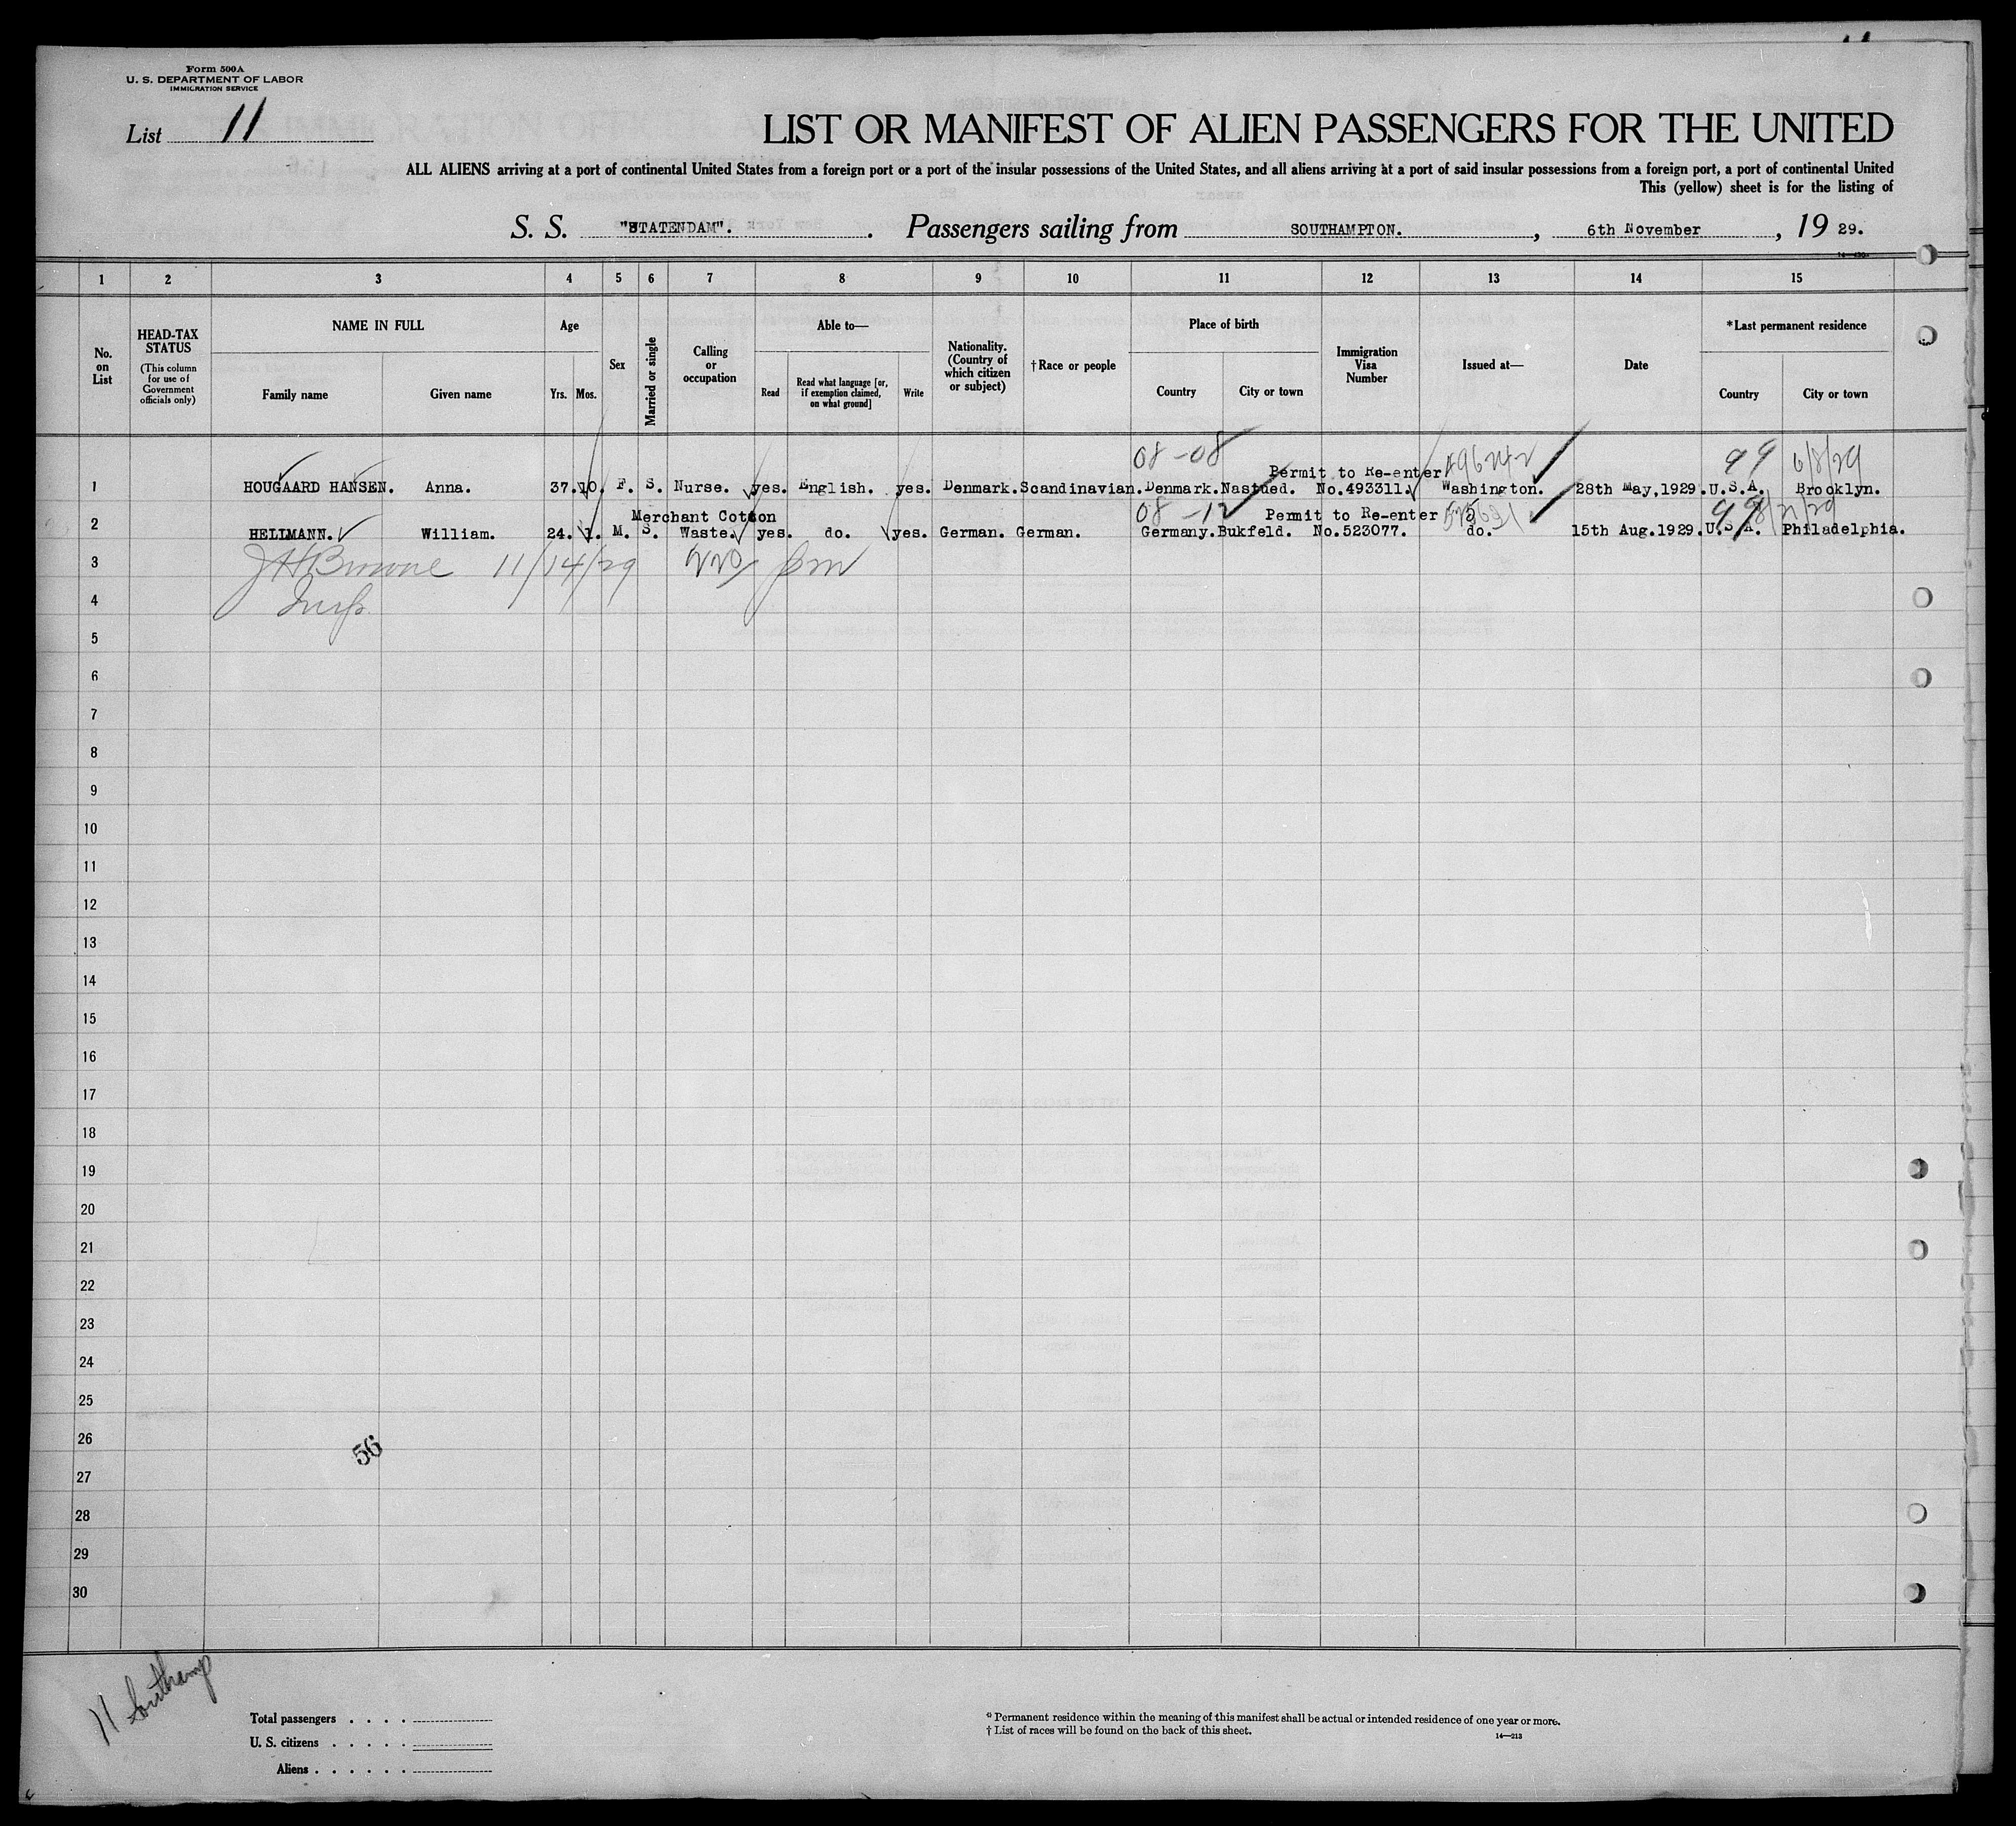 Form 500A
U. S. DEPARTMENT OF LABOR
IMMIGRATION SERVICE
List 11
LIST OR MANIFEST OF ALIEN PASSENGERS FOR THE UNITED
ALL ALIENS arriving at a port of continental United States from a foreign port or a port of the insular possessions of the United States, and all aliens arriving at a port of said insular possessions from a foreign port, a port of continental United
This (yellow) sheet is for the listing of
S. S. "STATENDAM". Passengers sailing from SOUTHAMPTON., 6th November, 19 29.
1 2 3 4 5 6 7 8 9 10 11 12 13 14 15
No. on List
HEAD-TAX STATUS
(This column for use of Government officials only)
NAME IN FULL
Family name
Given name
Age
Yrs. Mos.
Sex
Married or single
Calling or occupation
Able to—
Read
Read what language [or, if exemption claimed, on what ground]
Write
Nationality. (Country of which citizen or subject)
†Race or people
Place of birth
Country
City or town
Immigration Visa Number
Issued at—
Date
*Last permanent residence
Country
City or town
08-08 496242 99 6/8/29
Permit to Re-enter
1 HOUGAARD HANSEN. Anna. 37. 10. F. S. Nurse. yes. English. yes. Denmark. Scandinavian. Denmark. Nastued. No.493311. Washington. 28th May, 1929. U.S.A. Brooklyn.
08-12 99
Merchant Cotton Permit to Re-enter
2 HELLMANN. William. 24. 1. M. S. Waste. yes. do. yes. German. German. Germany. Bukfeld. No.523077. do. 15th Aug. 1929. U.S.A. Philadelphia.
3 J H Browne 11/14/29
4 Insp.
5
6
7
8
9
10
11
12
13
14
15
16
17
18
19
20
21
22
23
24
25
26
56
27
28
29
30
11 Southamp
Total passengers . . . .
U. S. citizens . . . . .
Aliens . . . . . .
* Permanent residence within the meaning of this manifest shall be actual or intended residence of one year or more.
† List of races will be found on the back of this sheet.
14—213